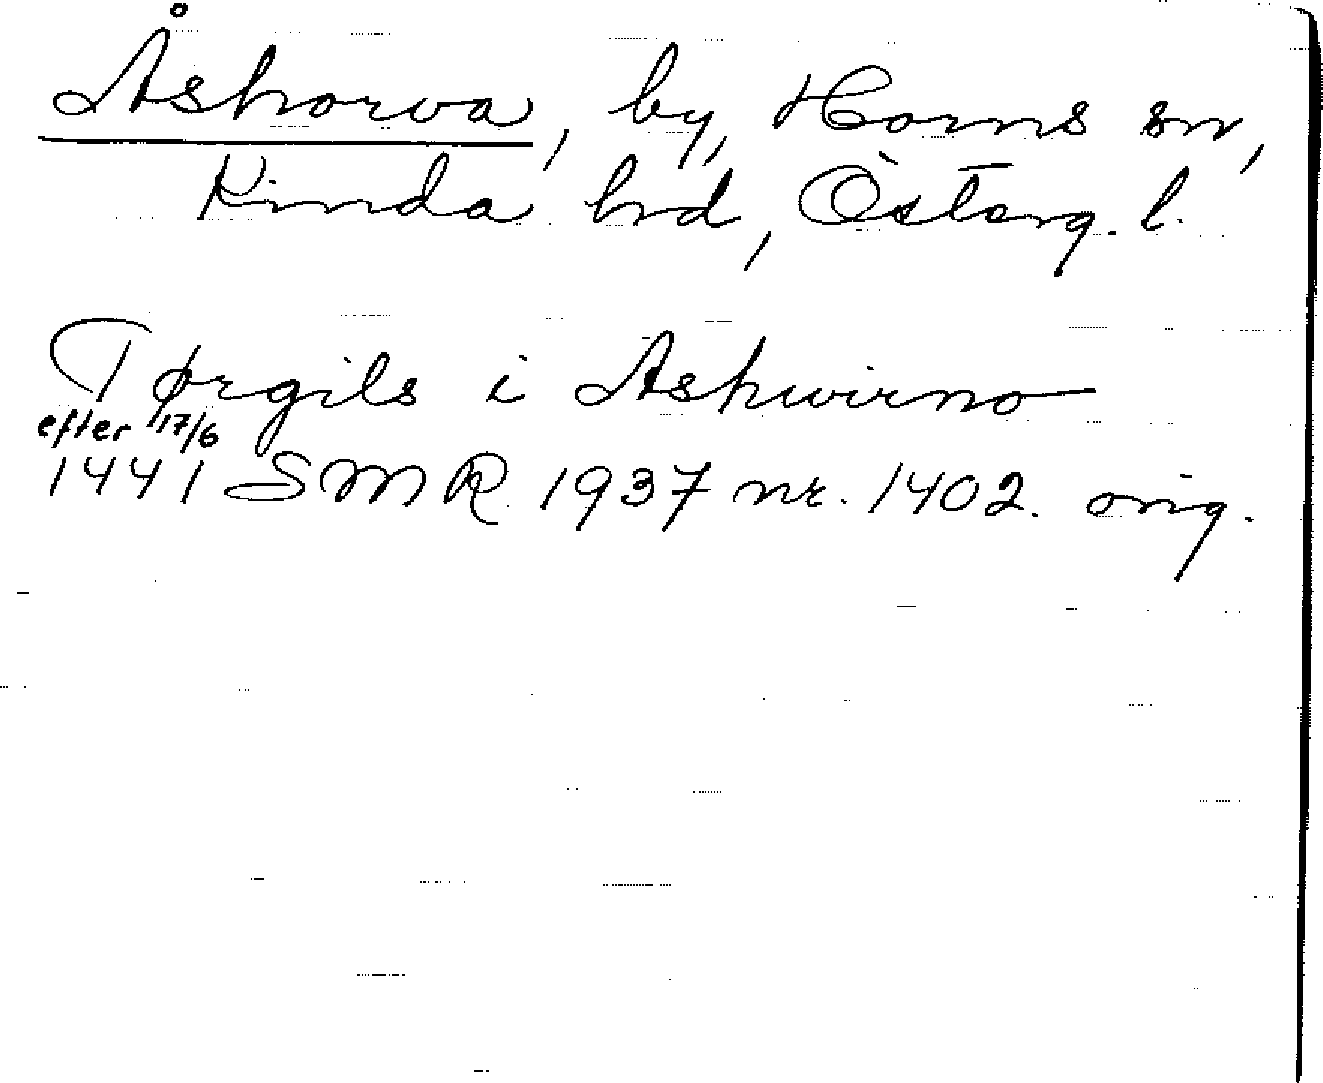 Åshorva, by, Horns sn,
Kinda hd, Österg. l.
Tørgils i Ashwirno
efter 17/6
1441 SMR 1937 nr. 1402. orig.